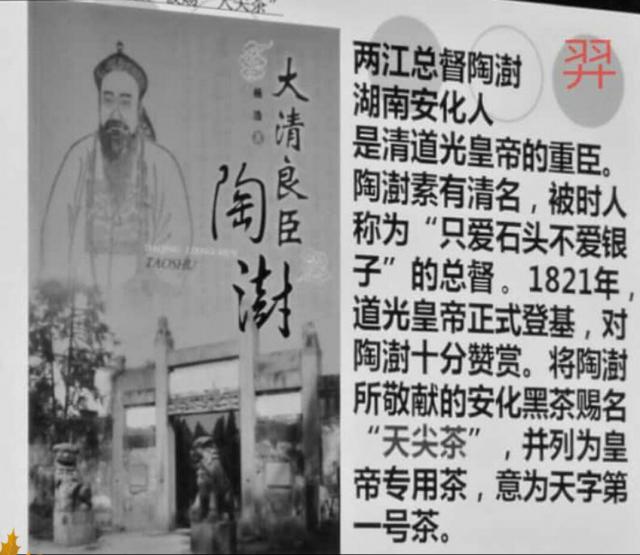 赐"天尖茶"
大清良臣
陶澍
杨浩
TAOSHU
两江总督陶澍
湖南安化人
是清道光皇帝的重臣。
陶澍素有清名，被时人
称为“只爱石头不爱银
子”的总督。1821年，
道光皇帝正式登基，对
陶澍十分赞赏。将陶澍
所敬献的安化黑茶赐名
“天尖茶”，并列为皇
帝专用茶，意为天字第
一号茶。
羿